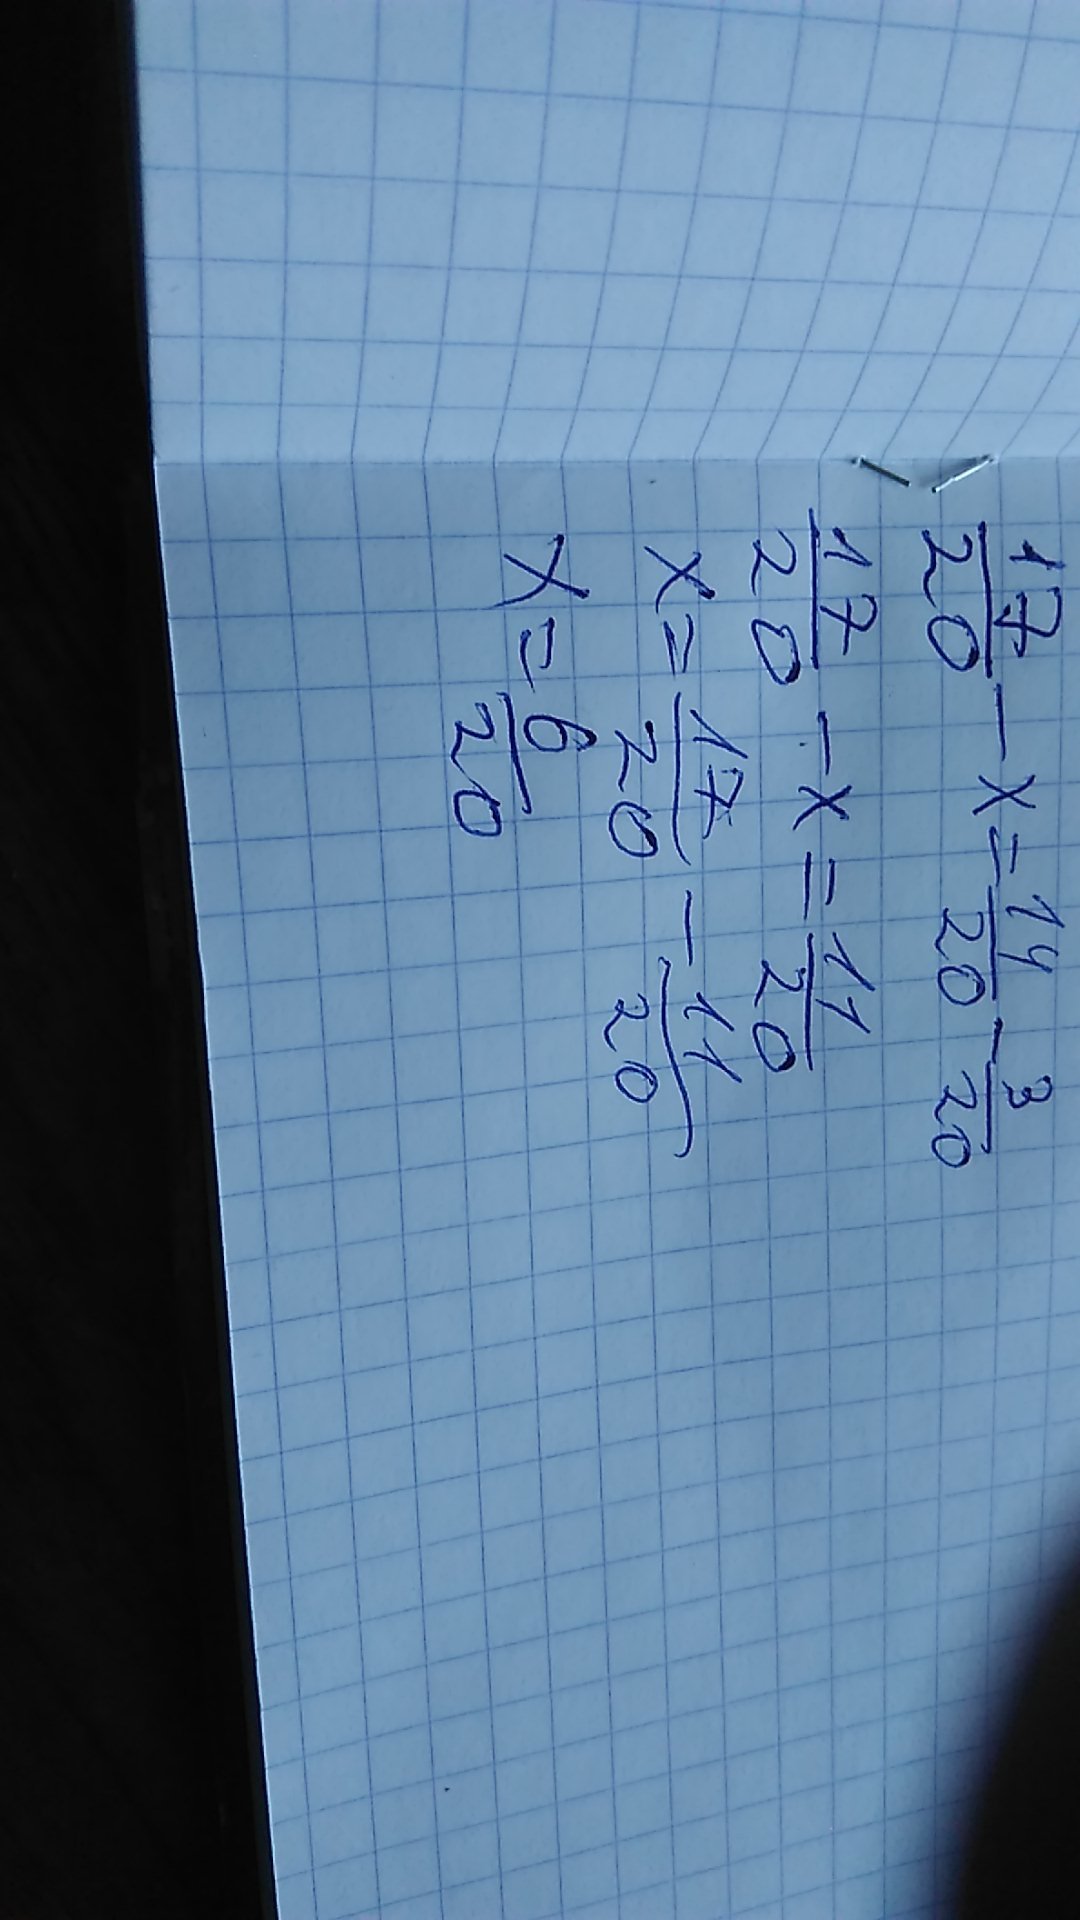 17/20 - x = 14/20 - 3/20
17/20 - x = 11/20
x = 17/20 - 11/20
x = 6/20